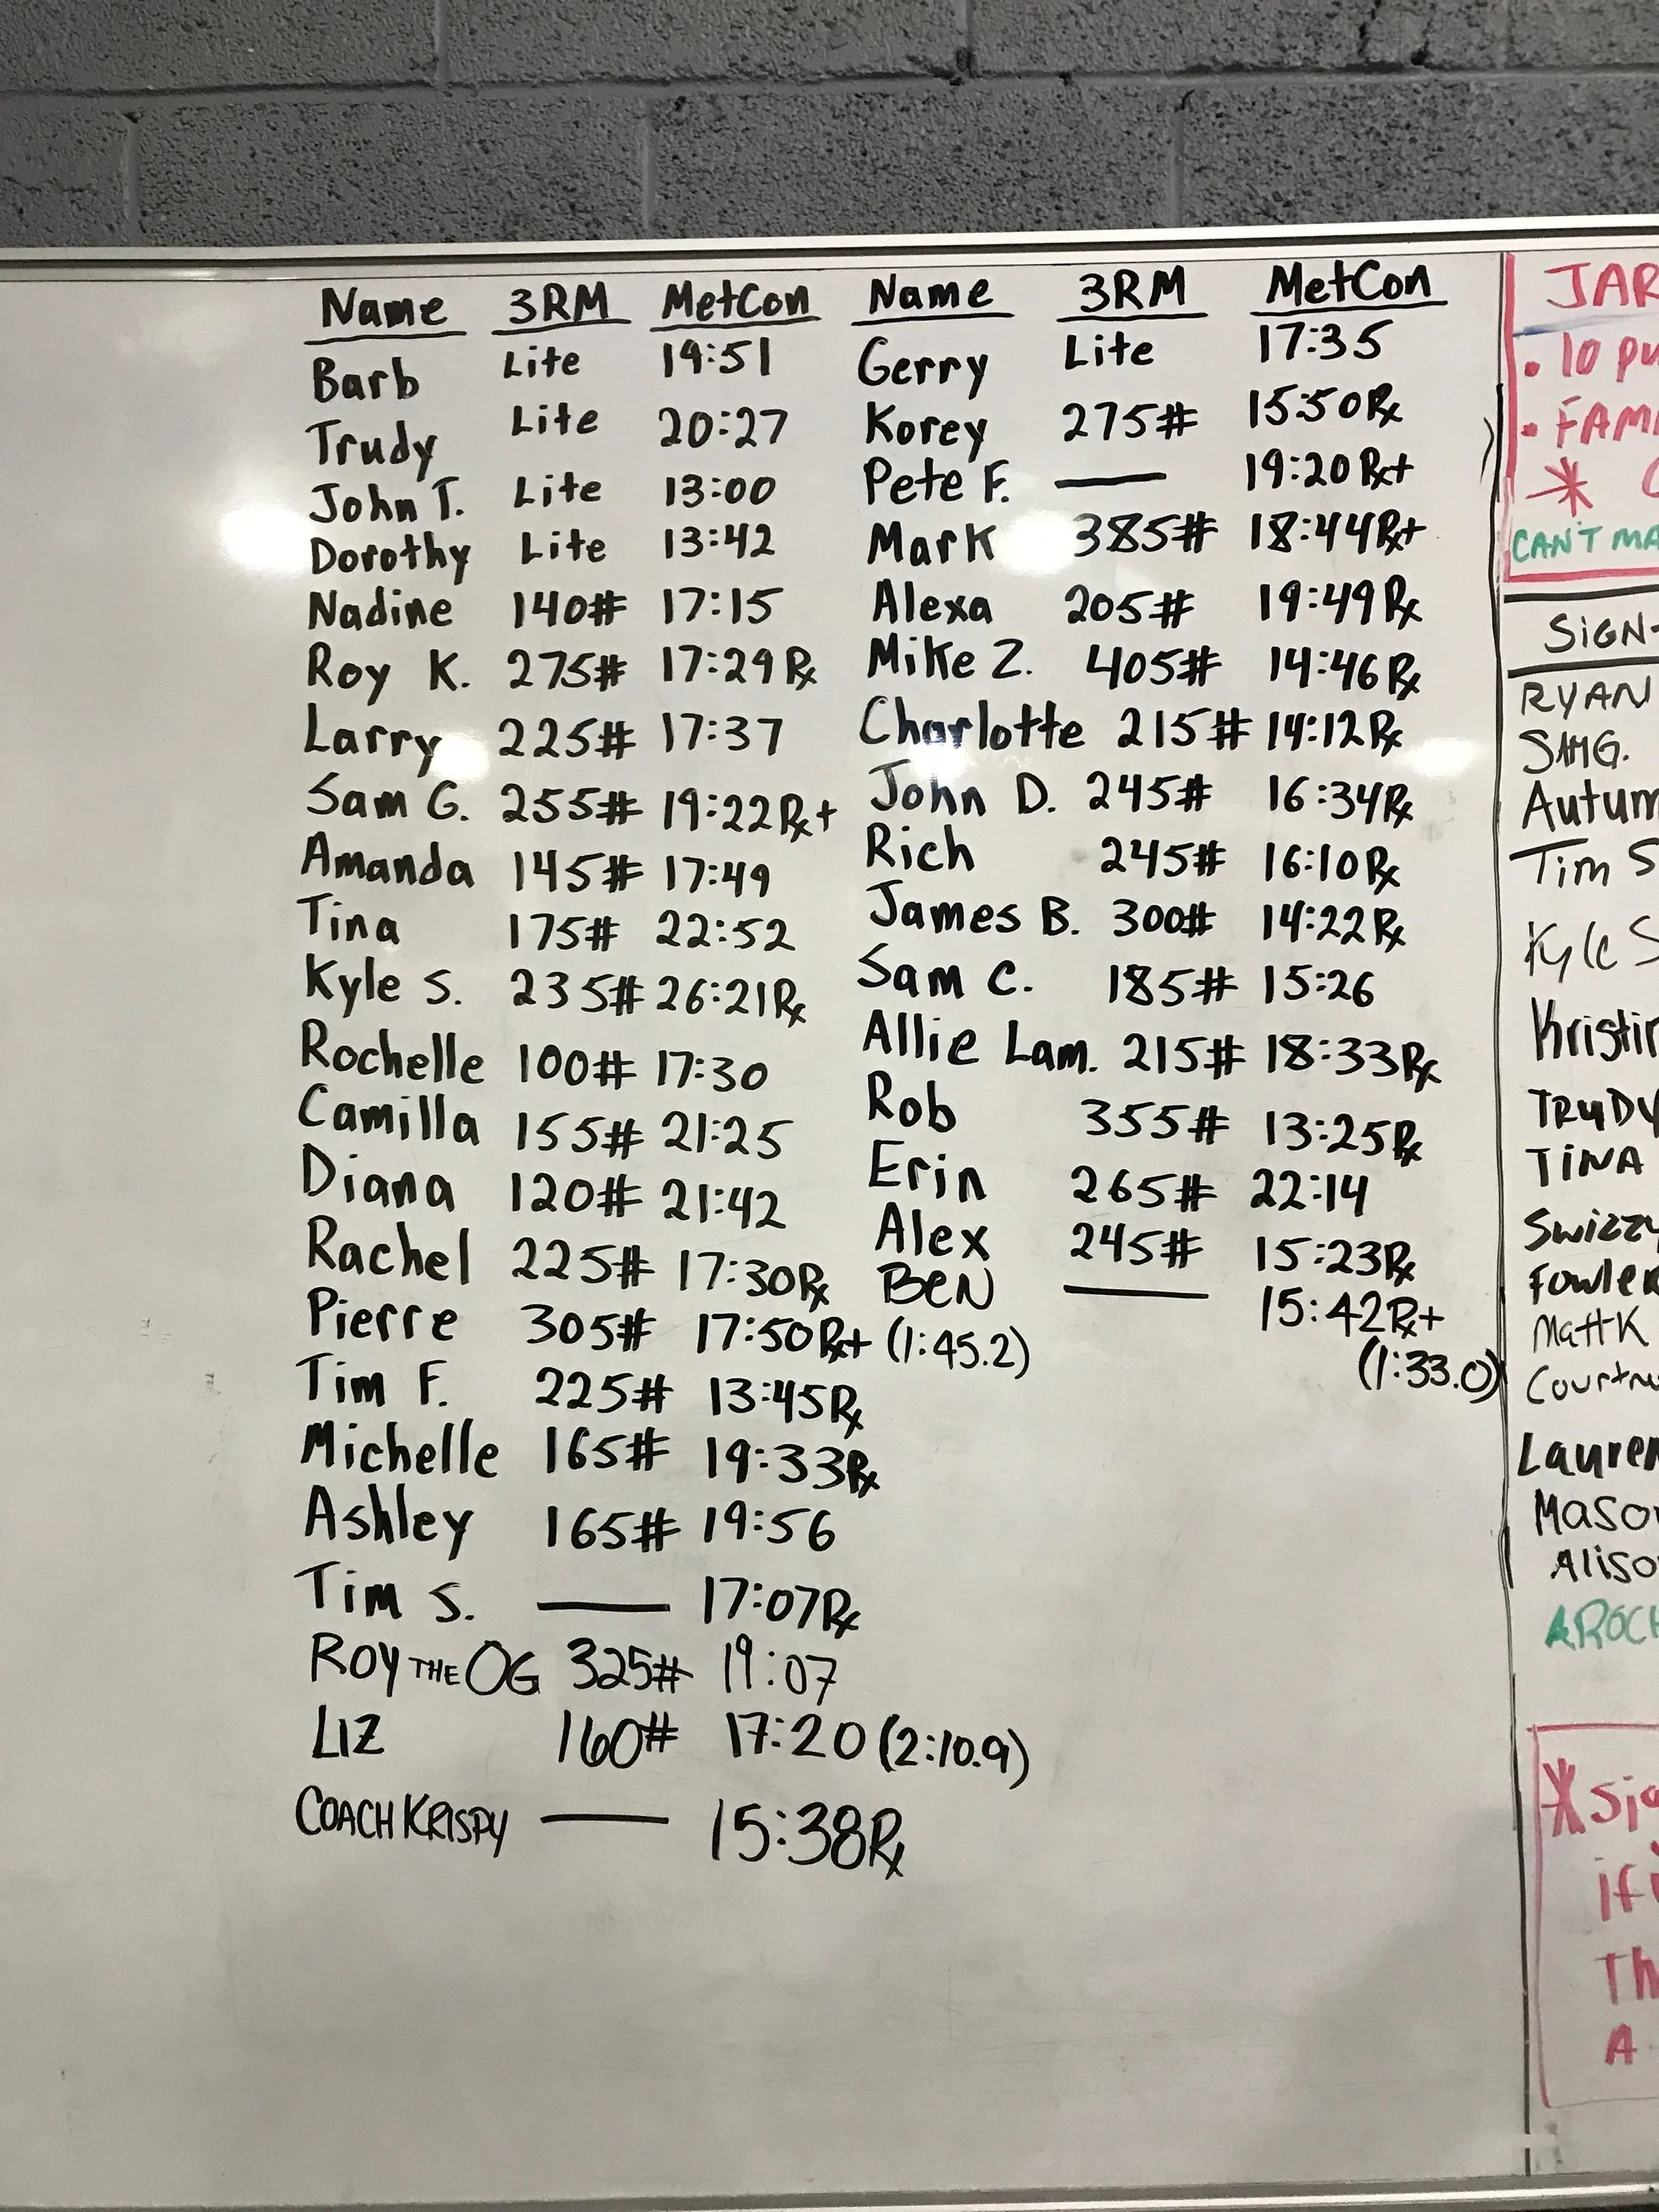 Name 3RM MetCon
Barb Lite 19:51
Trudy Lite 20:27
John T. Lite 13:00
Dorothy Lite 13:42
Nadine 140# 17:15
Roy K. 275# 17:29 Rx
Larry 225# 17:37
Sam G. 255# 19:22 Rx+
Amanda 145# 17:49
Tina 175# 22:52
Kyle S. 235# 26:21 Rx
Rochelle 100# 17:30
Camilla 155# 21:25
Diana 120# 21:42
Rachel 225# 17:30 Rx
Pierre 305# 17:50 Rx+ (1:45.2)
Tim F. 225# 13:45 Rx
Michelle 165# 19:33 Rx
Ashley 165# 19:56
Tim S. — 17:07 Rx
ROY THE OG 325# 19:07
LIZ 160# 17:20 (2:10.9)
COACH KRISPY — 15:38 Rx
Name 3RM MetCon
Gerry Lite 17:35
Korey 275# 15:50 Rx
Pete F. — 19:20 Rx+
Mark 385# 18:44 Rx+
Alexa 205# 19:49 Rx
Mike Z. 405# 14:46 Rx
Charlotte 215# 14:12 Rx
John D. 245# 16:34 Rx
Rich 245# 16:10 Rx
James B. 300# 14:22 Rx
Sam C. 185# 15:26
Allie Lam. 215# 18:33 Rx
Rob 355# 13:25 Rx
Erin 265# 22:14
Alex 245# 15:23 Rx
BEN — 15:42 Rx+
(1:33.0)
JAR
• 10 pu
• FAM
*
CAN'T MA
SIGN-
RYAN
SAM G.
Autum
Tim S
Kyle S
Kristin
TRUDY
TINA
Swizzy
Fowler
Matt K
Courtn
Lauren
Mason
Aliso
AROCH
* Sig
if i
Th
A